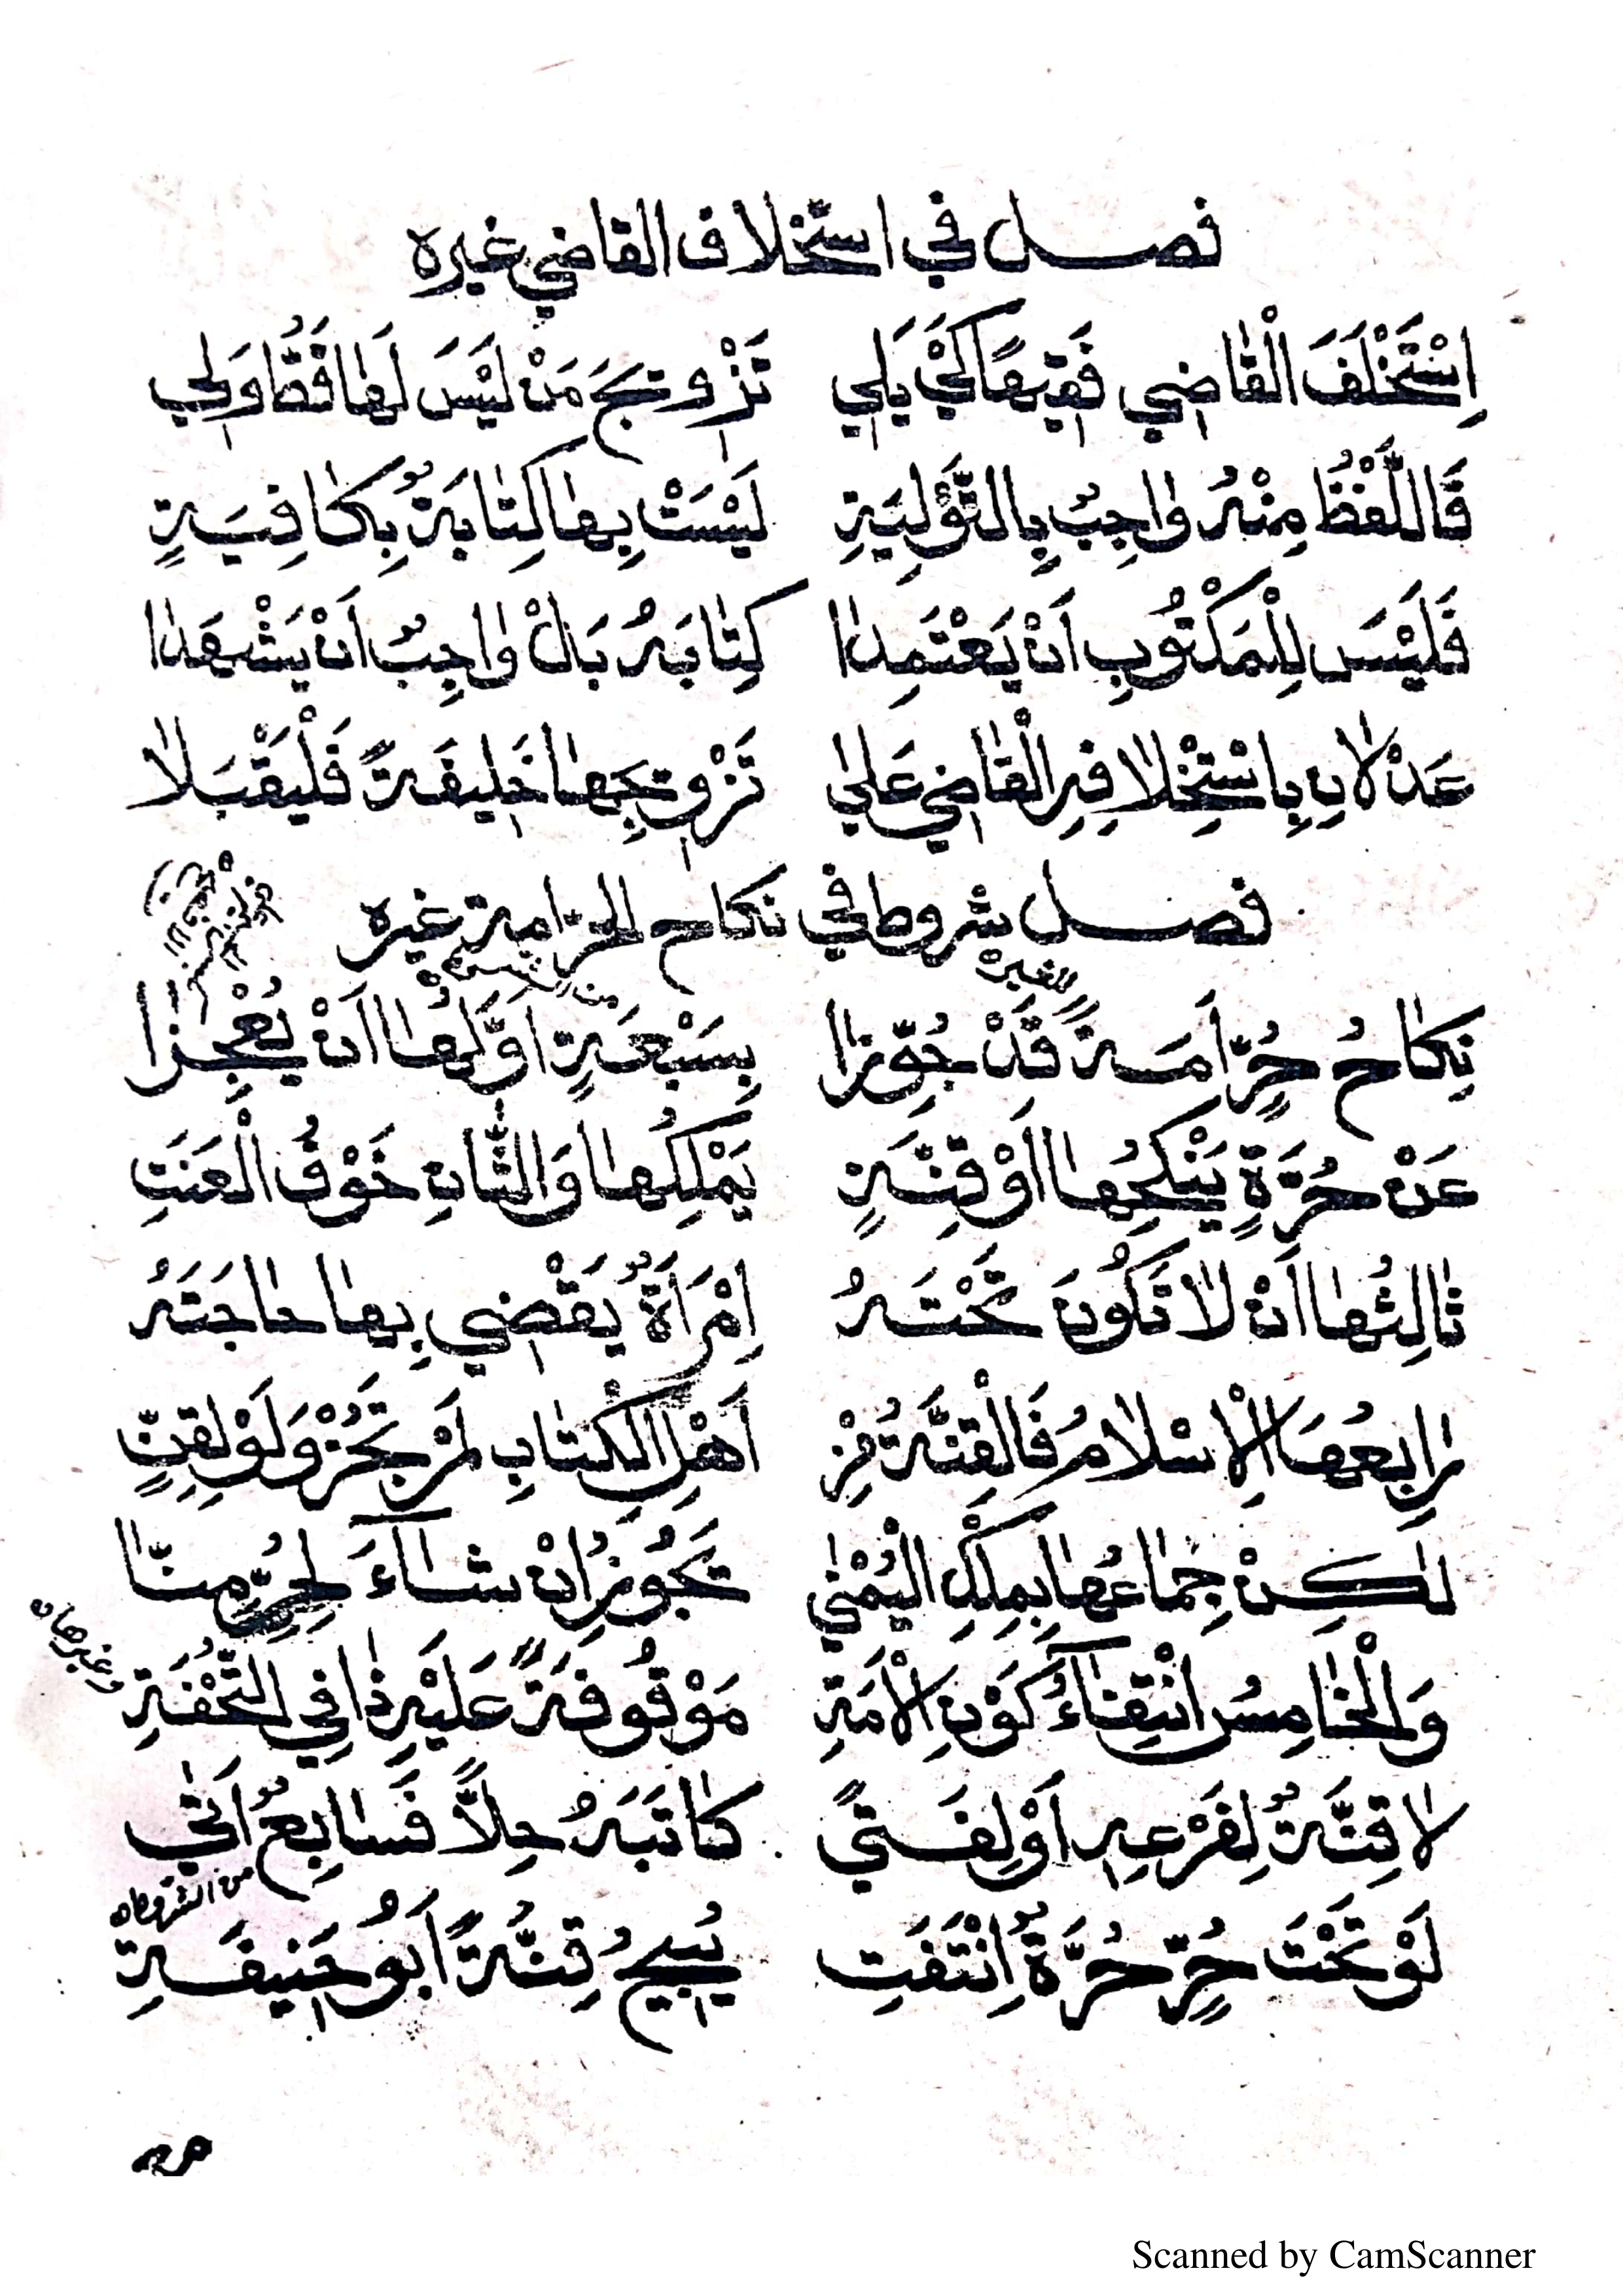 فصل في استخلاف القاضي غيره
اِسْتَخْلَفَ الْقَاضِي فَقِيهًا كَيْ يَلِي تَزْوِيجَ مَنْ لَيْسَ لَهَا قَطُّ وَلِي
فَاللَّفْظُ مِنْهُ وَاجِبٌ بِالتَّوْلِيَةِ لَيْسَتْ بِهَا كِتَابَةٌ بِكَافِيَةٍ
فَلَيْسَ لِلْمَكْتُوبِ اَنْ يَعْتَمِدَا كِتَابَهُ بَلْ وَاجِبٌ اَنْ يَشْهَدَا
عَدْلَانِ بِاسْتِخْلَافِهِ الْقَاضِي عَلَى تَزْوِيجِهَا خَلِيفَةً فَلْيَقْبَلَا
فصل شروط في نكاح الحرّ امة غيره
لغيره
نِكَاحُ حُرٍّ اَمَةً قَدْ جُوِّزَا بِسَبْعَةٍ اَوَّلُهَا اَنْ يُعْجِزَا
عَنْ حُرَّةٍ يَنْكِحُهَا اَوْ قِنَّةٍ يَمْلِكُهَا وَالثَّانِ خَوْفُ الْعَنَتِ
ثَالِثُهَا اَنْ لَا تَكُونَ تَحْتَهُ اِمْرَاَةٌ يَقْضِي بِهَا حَاجَتَهُ
رَابِعُهَا الْاِسْلَامُ فَالْقِنَّةُ مِنْ اَهْلِ الْكِتَابِ لَمْ تَجُزْ وَلَوْ لِقِنٍّ
لَكِنْ جِمَاعُهَا بِمِلْكِ الْيُمْنَى تَجُوزُ اِنْ شَاءَ لِحُرٍّ مِنَّا
وَالْخَامِسُ انْتِفَاءُ كَوْنِ الْاَمَةِ مَوْقُوفَةً عَلَيْهِ ذَا فِي التُّحْفَةِ
وغيرها ه
لَا قِنَّةٌ لِفَرْعِهِ اَوْ لِفَتًى كَاتَبَهُ حِلًّا فَسَابِعٌ اَتَى
من الشروط ه
لَوْ تَحْتَ حُرٍّ حُرَّةٌ اِنْتَفَتِ يُبِيحُ قِنَّةً اَبُو حَنِيفَةِ
Scanned by CamScanner